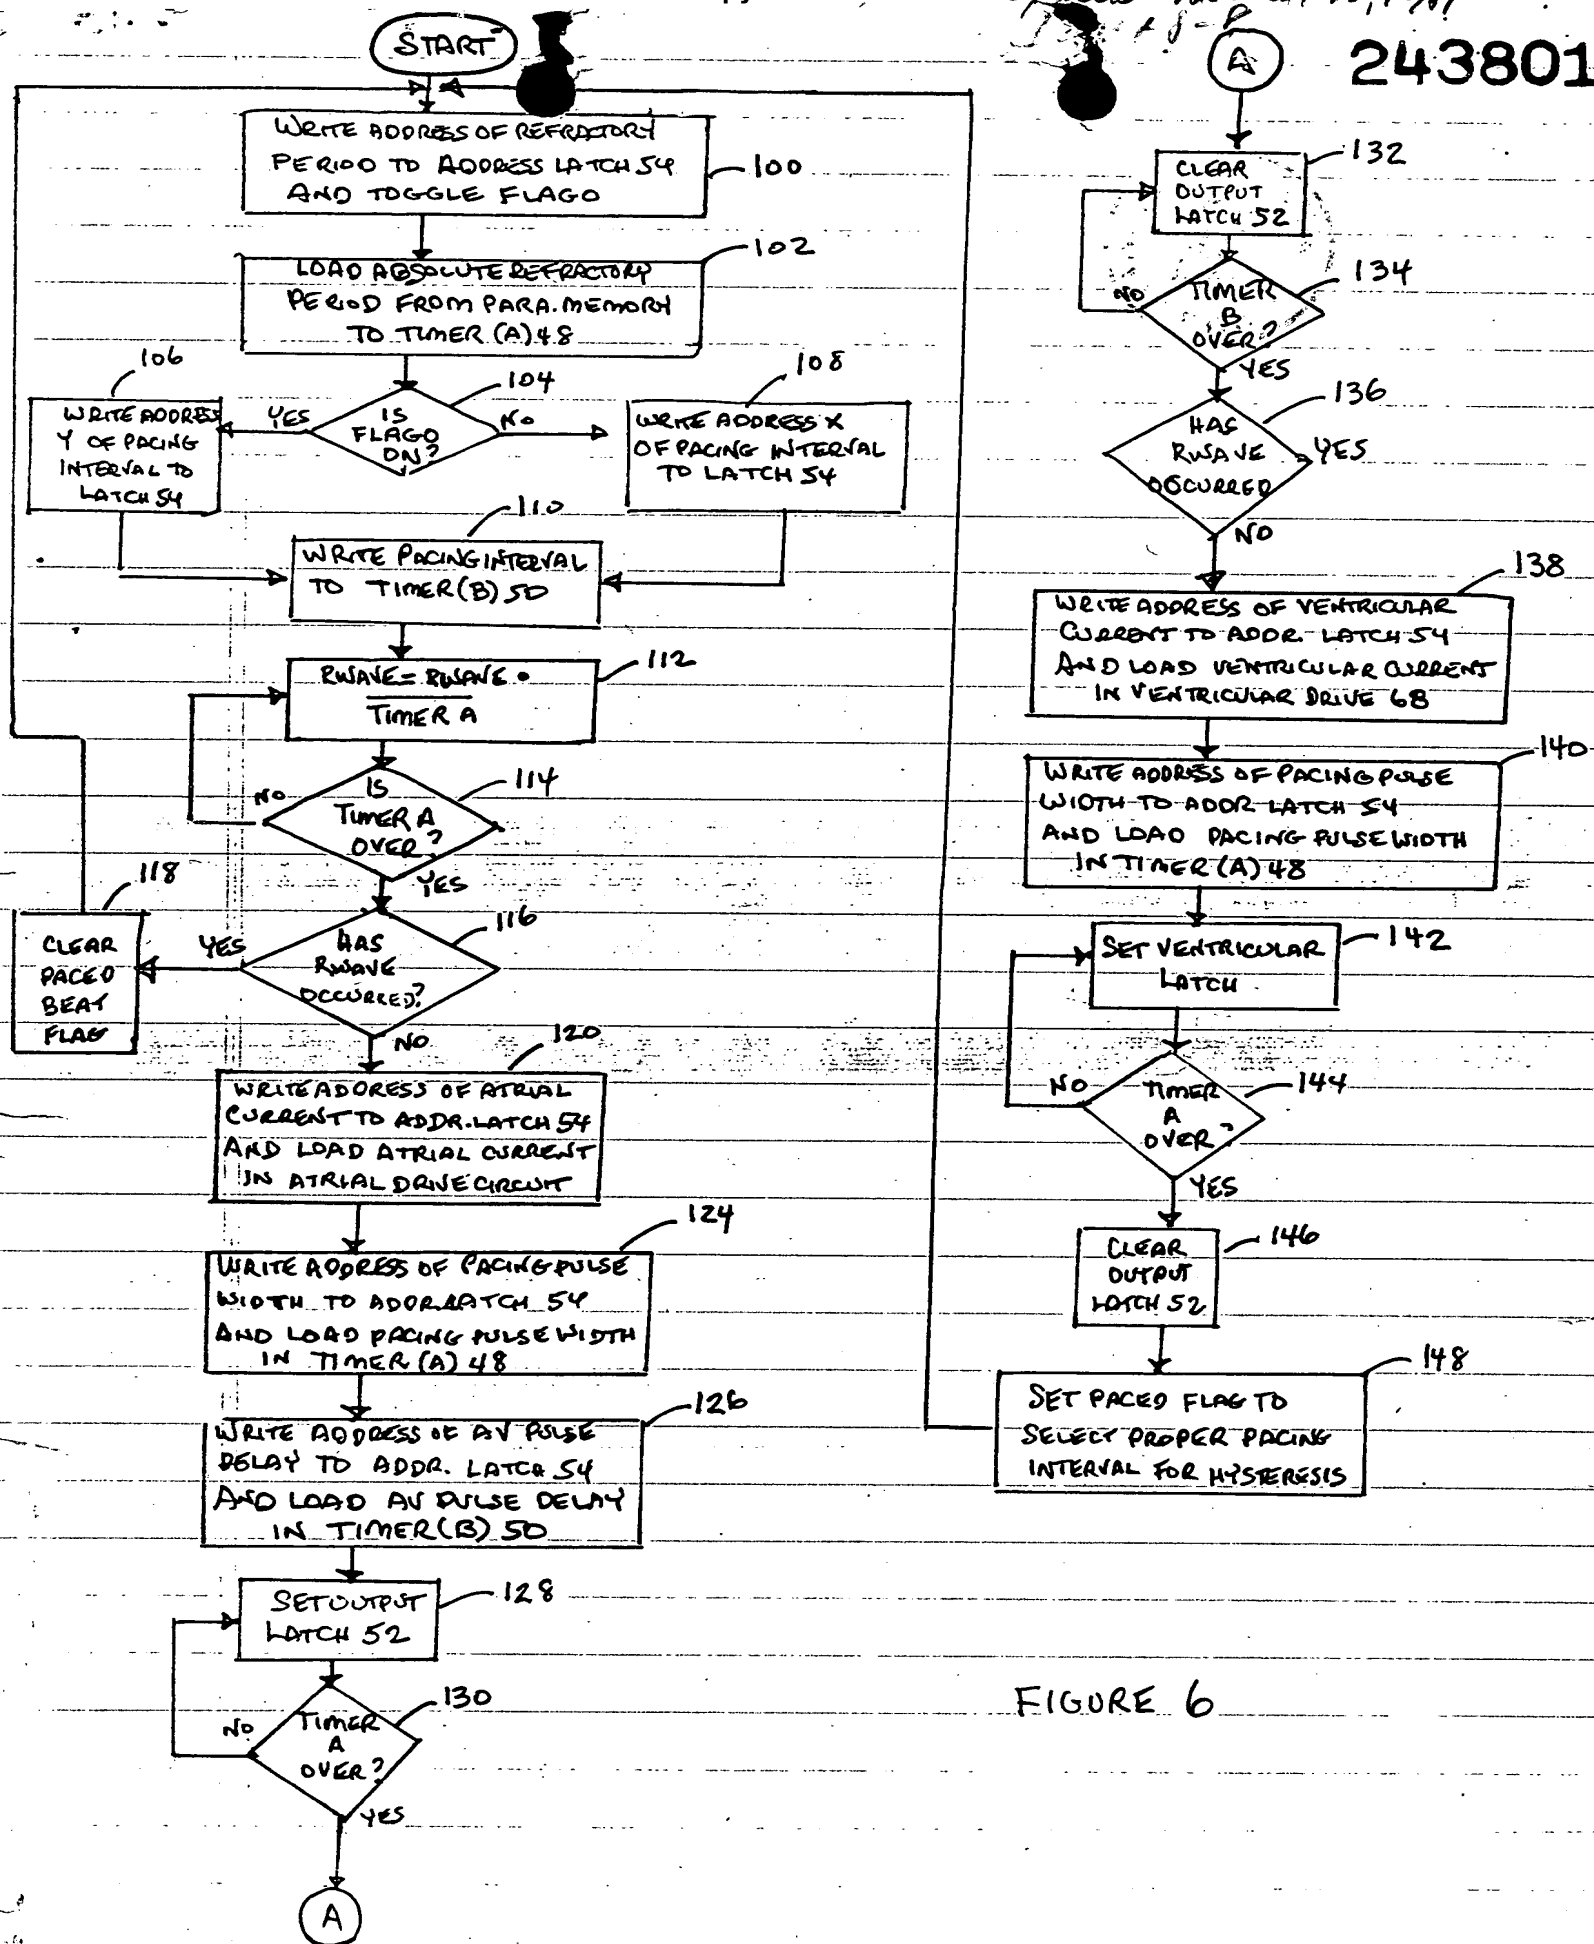 START
WRITE ADDRESS OF REFRACTORY
PERIOD TO ADDRESS LATCH 54
AND TOGGLE FLAGO
100
LOAD ABSOLUTE REFRACTORY
PERIOD FROM PARA. MEMORY
TO TIMER (A) 48
102
IS
FLAGO
ON?
104
YES
NO
WRITE ADDRESS
Y OF PACING
INTERVAL TO
LATCH 54
106
WRITE ADDRESS X
OF PACING INTERVAL
TO LATCH 54
108
WRITE PACING INTERVAL
TO TIMER (B) 50
110
RWAVE = RWAVE •
TIMER A
112
IS
TIMER A
OVER?
114
NO
YES
HAS
RWAVE
OCCURRED?
116
YES
NO
CLEAR
PACED
BEAT
FLAG
118
WRITE ADDRESS OF ATRIAL
CURRENT TO ADDR. LATCH 54
AND LOAD ATRIAL CURRENT
IN ATRIAL DRIVE CIRCUIT
120
WRITE ADDRESS OF PACING PULSE
WIDTH TO ADDR. LATCH 54
AND LOAD PACING PULSE WIDTH
IN TIMER (A) 48
124
WRITE ADDRESS OF AV PULSE
DELAY TO ADDR. LATCH 54
AND LOAD AV PULSE DELAY
IN TIMER (B) 50
126
SET OUTPUT
LATCH 52
128
TIMER
A
OVER?
130
NO
YES
A
A
243801
CLEAR
OUTPUT
LATCH 52
132
TIMER
B
OVER?
134
NO
YES
HAS
RWAVE
OCCURRED
136
YES
NO
WRITE ADDRESS OF VENTRICULAR
CURRENT TO ADDR. LATCH 54
AND LOAD VENTRICULAR CURRENT
IN VENTRICULAR DRIVE 68
138
WRITE ADDRESS OF PACING PULSE
WIDTH TO ADDR. LATCH 54
AND LOAD PACING PULSE WIDTH
IN TIMER (A) 48
140
SET VENTRICULAR
LATCH
142
TIMER
A
OVER?
144
NO
YES
CLEAR
OUTPUT
LATCH 52
146
SET PACED FLAG TO
SELECT PROPER PACING
INTERVAL FOR HYSTERESIS
148
FIGURE 6